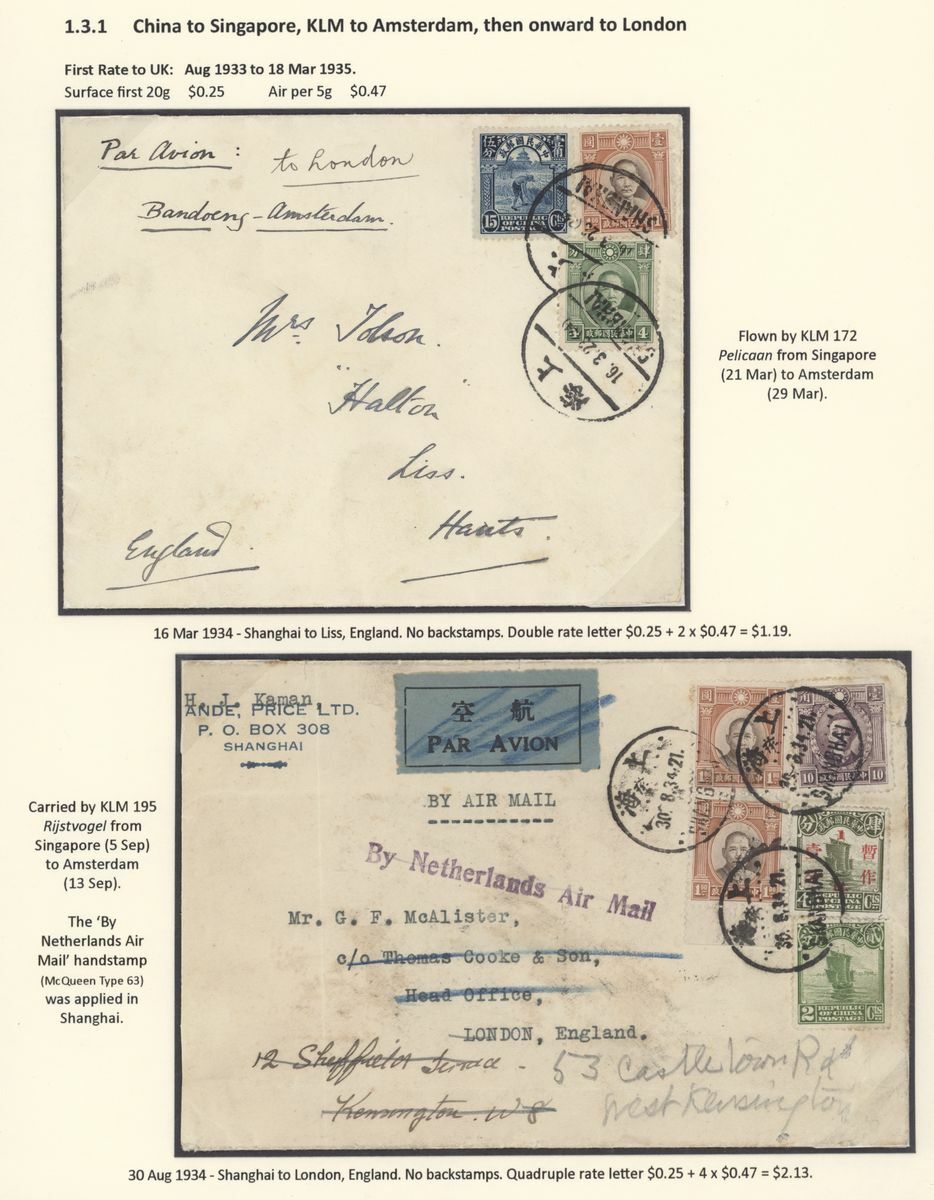 1.3.1 China to Singapore, KLM to Amsterdam, then onward to London
First Rate to UK: Aug 1933 to 18 Mar 1935.
Surface first 20g $0.25 Air per 5g $0.47
Par Avion : to London
Bandoeng - Amsterdam.
15 Cts
REPUBLIC OF CHINA POSTAGE
SHANGHAI
4
上海
16. 3.
SHANGHAI
Mrs Tolson.
"Halton"
Liss.
Hants.
England.
Flown by KLM 172
Pelicaan from Singapore
(21 Mar) to Amsterdam
(29 Mar).
16 Mar 1934 - Shanghai to Liss, England. No backstamps. Double rate letter $0.25 + 2 x $0.47 = $1.19.
H. J. Kaman,
ANDE, PRICE LTD.
P. O. BOX 308
SHANGHAI
航空
PAR AVION
BY AIR MAIL
By Netherlands Air Mail
上海
30. 8. 34. 21.
SHANGHAI
上海
30. 8. 34. 21.
SHANGHAI
10 10
暫作
壹
1
Cts
上海
30. 8. 34. 21.
SHANGHAI
2 Cts
REPUBLIC OF CHINA POSTAGE
Mr. G. F. McAlister,
c/o Thomas Cooke & Son,
Head Office,
LONDON, England.
12 Sheffield Terrace -
Kensington W 8
53 Castletown Rd
West Kensington
Carried by KLM 195
Rijstvogel from
Singapore (5 Sep)
to Amsterdam
(13 Sep).
The ‘By
Netherlands Air
Mail’ handstamp
(McQueen Type 63)
was applied in
Shanghai.
30 Aug 1934 - Shanghai to London, England. No backstamps. Quadruple rate letter $0.25 + 4 x $0.47 = $2.13.